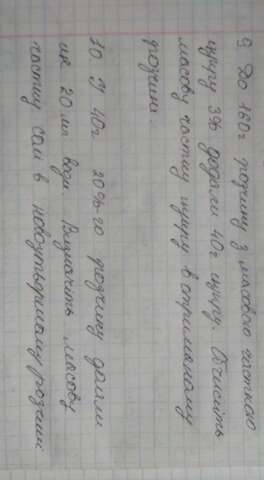 9 До 160г розчину з масовою часткою
цукру 3% додали 40г цукру. Обчисліть
масову частку цукру в отриманому
розчині.
10 У 40г 20%-го розчину долили
ще 20 мл води. Визначть масову
частку солі в новоутвореному розчині